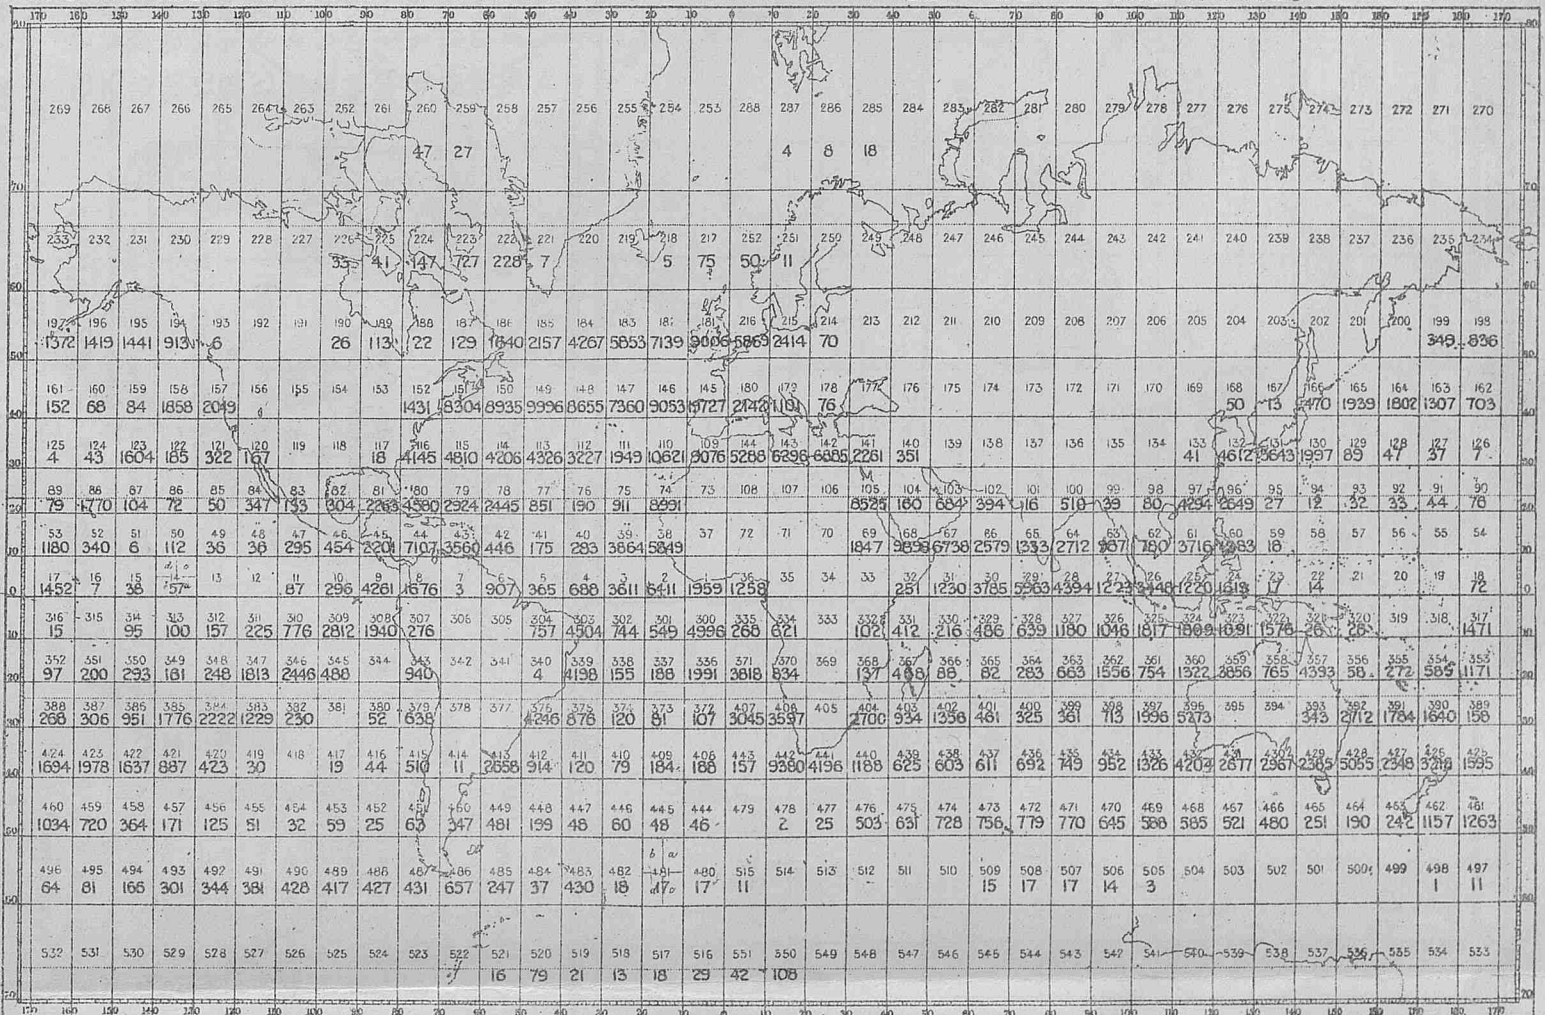 170 160 150 140 130 120 110 100 90 80 70 60 50 40 30 20 10 0 10 20 30 40 50 60 70 80 90 100 110 120 130 140 150 160 170 180 170
269 268 267 266 265 264 263 262 261 260 259 258 257 256 255 254 253 288 287 286 285 284 283 282 281 280 279 278 277 276 275 274 273 272 271 270
47 27 4 8 18
70 70
233 232 231 230 229 228 227 226 225 224 223 222 221 220 219 218 217 252 251 250 249 248 247 246 245 244 243 242 241 240 239 238 237 236 235 234
33 41 147 727 228 7 5 75 50 11
60 60
197 196 195 194 193 192 191 190 189 188 187 186 185 184 183 182 181 216 215 214 213 212 211 210 209 208 207 206 205 204 203 202 201 200 199 198
1372 1419 1441 913 6 26 113 22 129 1640 2157 4267 5853 7139 9006 5869 2414 70 349 836
50 50
161 160 159 158 157 156 155 154 153 152 151 150 149 148 147 146 145 180 179 178 177 176 175 174 173 172 171 170 169 168 167 166 165 164 163 162
152 68 84 1858 2049 1431 8304 8935 9996 8655 7360 9053 2142 1191 76 50 13 470 1939 1802 1307 703
40 40
125 124 123 122 121 120 119 118 117 116 115 114 113 112 111 110 109 144 143 142 141 140 139 138 137 136 135 134 133 132 131 130 129 128 127 126
4 43 1604 185 322 167 18 4145 4810 4206 4326 3227 1949 10621 9076 5288 6396 6885 2281 351 41 4612 5643 1997 89 47 37 7
30 30
89 88 87 86 85 84 83 82 81 80 79 78 77 76 75 74 73 108 107 106 105 104 103 102 101 100 99 98 97 96 95 94 93 92 91 90
79 1770 104 72 50 347 133 304 2263 4580 2924 2445 851 190 911 8991 8525 160 684 394 116 510 39 80 4294 2649 27 12 32 33 44 78
20 20
53 52 51 50 49 48 47 46 45 44 43 42 41 40 39 38 37 72 71 70 69 68 67 66 65 64 63 62 61 60 59 58 57 56 55 54
1180 340 6 112 36 38 295 454 2201 7107 3560 446 175 283 3864 5849 1847 9898 6738 2579 1333 2712 987 780 3716 18
10 10
17 16 15 14 13 12 11 10 9 8 7 6 5 4 3 2 1 36 35 34 33 32 31 30 29 28 27 26 25 24 23 22 21 20 19 18
1452 7 38 57 87 296 4261 1676 3 907 365 688 3611 6411 1959 1258 251 1230 3785 5963 4394 1223 3448 1220 1613 17 14 72
0 0
316 315 314 313 312 311 310 309 308 307 306 305 304 303 302 301 300 335 334 333 332 331 330 329 328 327 326 325 324 323 322 321 320 319 318 317
15 95 100 157 225 776 2812 1940 276 757 4504 744 549 4996 268 621 1021 412 216 486 639 1180 1046 1817 1809 1691 1576 26 28 1471
10 10
352 351 350 349 348 347 346 345 344 343 342 341 340 339 338 337 336 371 370 369 368 367 366 365 364 363 362 361 360 359 358 357 356 355 354 353
97 200 293 181 248 1813 2446 488 940 4 4198 155 188 1991 3818 834 137 468 88 82 283 663 1556 754 1322 3856 765 4393 58 272 589 1171
20 20
388 387 386 385 384 383 382 381 380 379 378 377 376 375 374 373 372 407 406 405 404 403 402 401 400 399 398 397 396 395 394 393 392 391 390 389
268 306 951 1776 2222 1229 230 52 638 4246 876 120 81 107 3045 3597 2700 934 1356 461 325 361 713 1996 5273 343 2712 1784 1640 158
30 30
424 423 422 421 420 419 418 417 416 415 414 413 412 411 410 409 408 443 442 441 440 439 438 437 436 435 434 433 432 431 430 429 428 427 426 425
1694 1978 1637 887 423 30 19 44 510 11 2658 914 120 79 184 188 157 9380 4196 1188 625 603 611 692 749 952 1326 4204 2677 2967 2385 5055 2348 3218 1595
40 40
460 459 458 457 456 455 454 453 452 451 450 449 448 447 446 445 444 479 478 477 476 475 474 473 472 471 470 469 468 467 466 465 464 463 462 461
1034 720 364 171 125 51 32 59 25 63 347 481 199 48 60 48 46 2 25 503 631 728 756 779 770 645 588 585 521 480 251 190 242 1157 1263
50 50
b a
496 495 494 493 492 491 490 489 488 487 486 485 484 483 482 481 480 515 514 513 512 511 510 509 508 507 506 505 504 503 502 501 500 499 498 497
64 81 166 301 344 381 428 417 427 431 657 247 37 430 18 17 17 11 15 17 17 14 3 1 11
60 60
532 531 530 529 528 527 526 525 524 523 522 521 520 519 518 517 516 551 550 549 548 547 546 545 544 543 542 541 540 539 538 537 536 535 534 533
16 79 21 13 18 29 42 108
70 70
170 160 150 140 130 120 110 100 90 80 70 60 50 40 30 20 10 0 10 20 30 40 50 60 70 80 90 100 110 120 130 140 150 160 170 180 170